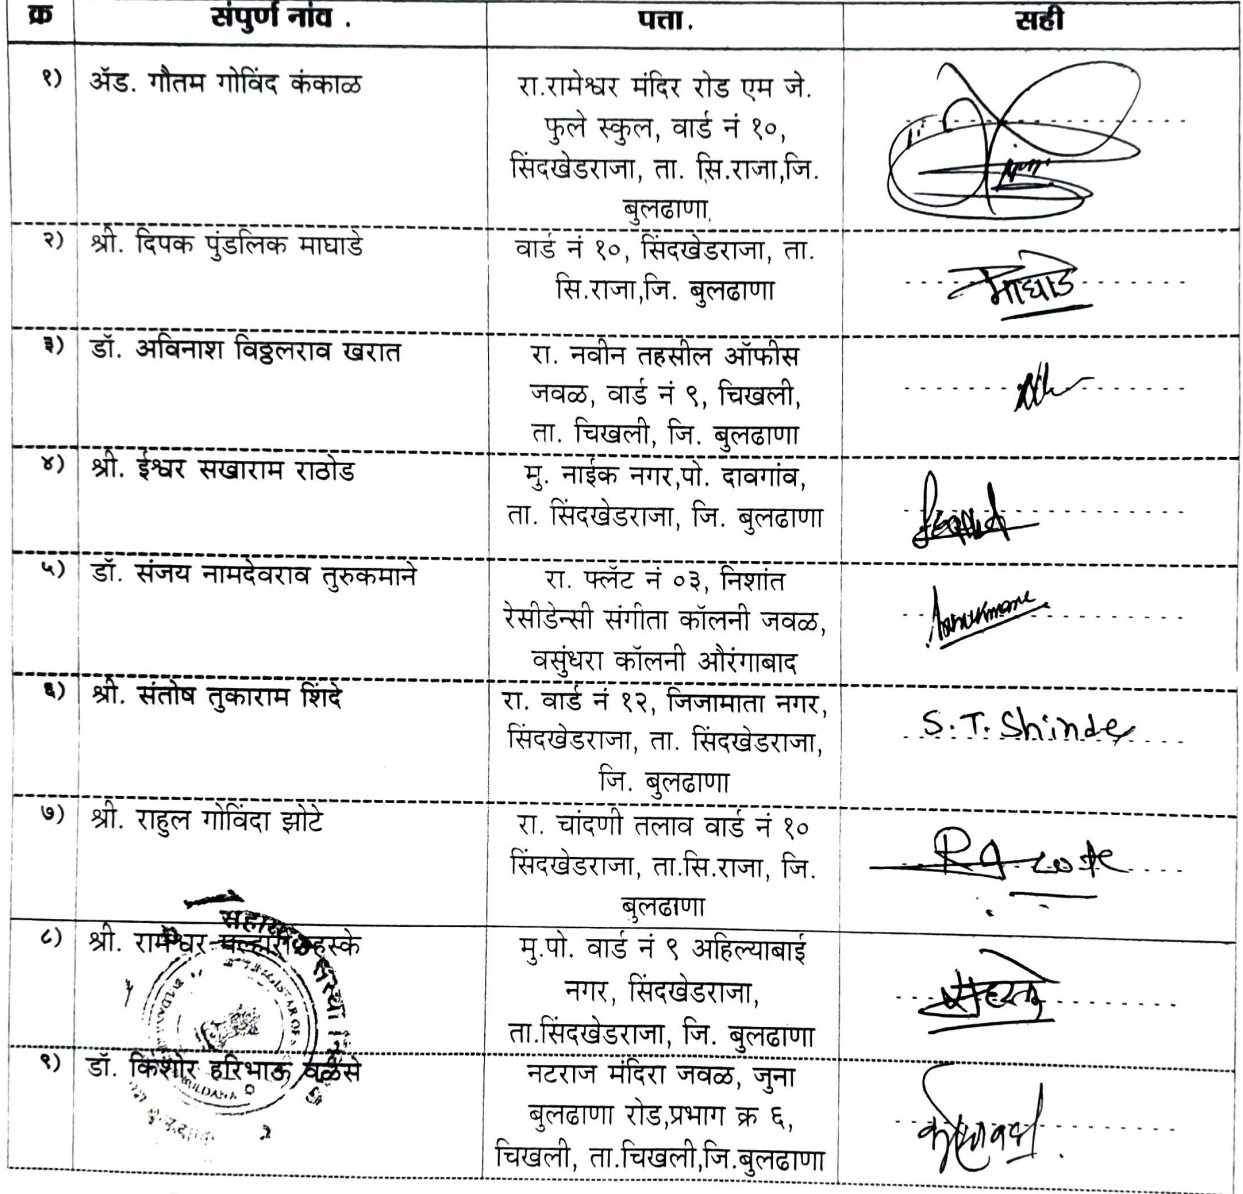 क्र संपुर्ण नांव . पत्ता. सही
१) ॲड. गौतम गोविंद कंकाळ रा.रामेश्वर मंदिर रोड एम जे.
फुले स्कुल, वार्ड नं १०,
सिंदखेडराजा, ता. सि.राजा,जि.
बुलढाणा.
२) श्री. दिपक पुंडलिक माघाडे वार्ड नं १०, सिंदखेडराजा, ता.
सि.राजा,जि. बुलढाणा माघाडे
३) डॉ. अविनाश विठ्ठलराव खरात रा. नवीन तहसील ऑफीस
जवळ, वार्ड नं ९, चिखली,
ता. चिखली, जि. बुलढाणा
४) श्री. ईश्वर सखाराम राठोड मु. नाईक नगर,पो. दावगांव,
ता. सिंदखेडराजा, जि. बुलढाणा
५) डॉ. संजय नामदेवराव तुरुकमाने रा. फ्लॅट नं ०३, निशांत
रेसीडेन्सी संगीता कॉलनी जवळ,
वसुंधरा कॉलनी औरंगाबाद
६) श्री. संतोष तुकाराम शिंदे रा. वार्ड नं १२, जिजामाता नगर,
सिंदखेडराजा, ता. सिंदखेडराजा, S.T. Shinde
जि. बुलढाणा
७) श्री. राहुल गोविंदा झोटे रा. चांदणी तलाव वार्ड नं १०
सिंदखेडराजा, ता.सि.राजा, जि.
बुलढाणा
८) श्री. रामेश्वर मल्हारी म्हस्के मु.पो. वार्ड नं ९ अहिल्याबाई
नगर, सिंदखेडराजा,
ता.सिंदखेडराजा, जि. बुलढाणा
९) डॉ. किशोर हरिभाऊ वळसे नटराज मंदिरा जवळ, जुना
बुलढाणा रोड,प्रभाग क्र ६,
चिखली, ता.चिखली,जि.बुलढाणा